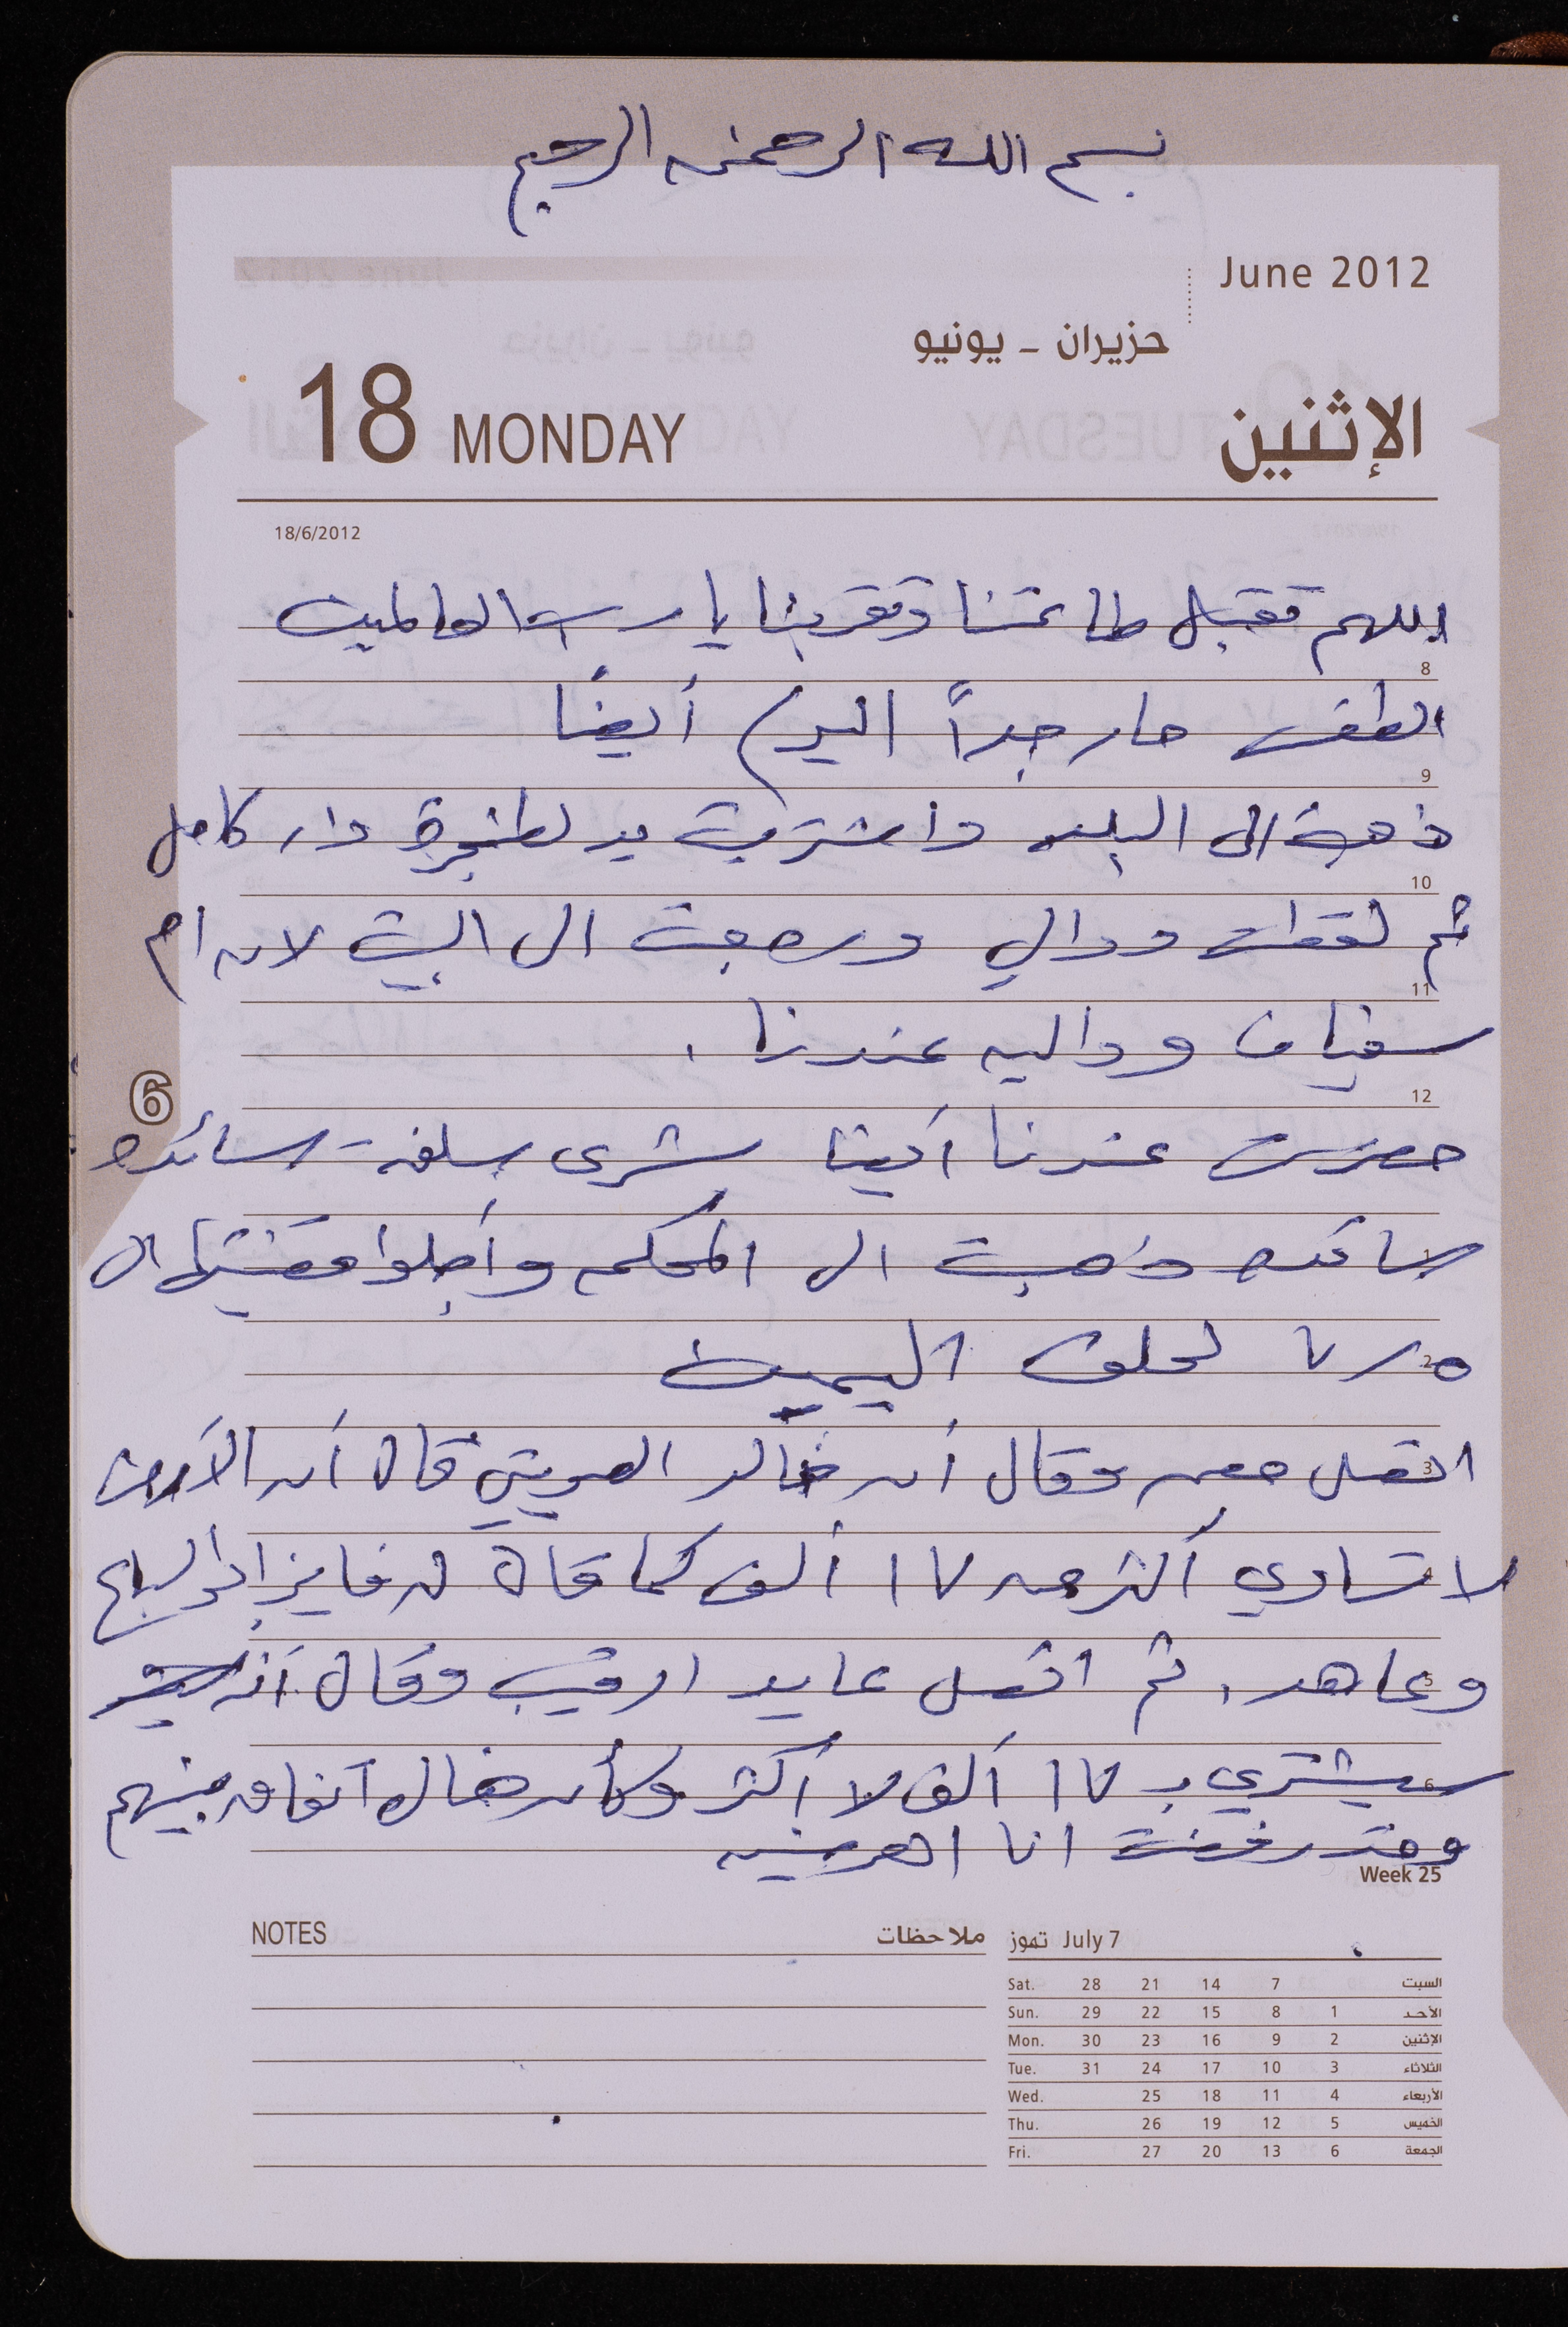 بسم الله الرحمن الرحيم
June 2012
حزيران - يونيو
18 MONDAY الإثنين
18/6/2012
اللهم تقبل طاعتنا وتقربنا يا رب العالمين
8
الطقس حار جداً اليوم أيضًا
9
ذهبت الى البلد واشتريت يد لطنجرة دار كامل
10
ثم لقطت دوالي ورجعت الى البيت لان ام
11
سفيان وداليه عندنا .
12
6
حضرت عندنا أيضا بشرى سلفة سائده
1
سائده ذهبت الى المحكمه وأجلوا قضيتها الى
٧/٥ لحلف اليمين
2
اتصل معي وقال أن خالد قال أن الأرض
3
لا تساوي أكثر من ١٧ ألف كما قال له فايز
وعاهد . ثم اتصل عايد وقال أنه
5
سيشتري بـ ١٧ ألف لا أكثر وكأن هناك اتفاق بينهم
6
وقد رفضت انا العرض
Week 25
NOTES ملاحظات
تموز July 7
Sat. 28 21 14 7 السبت
Sun. 29 22 15 8 1 الأحد
Mon. 30 23 16 9 2 الإثنين
Tue. 31 24 17 10 3 الثلاثاء
Wed. 25 18 11 4 الأربعاء
Thu. 26 19 12 5 الخميس
Fri. 27 20 13 6 الجمعة